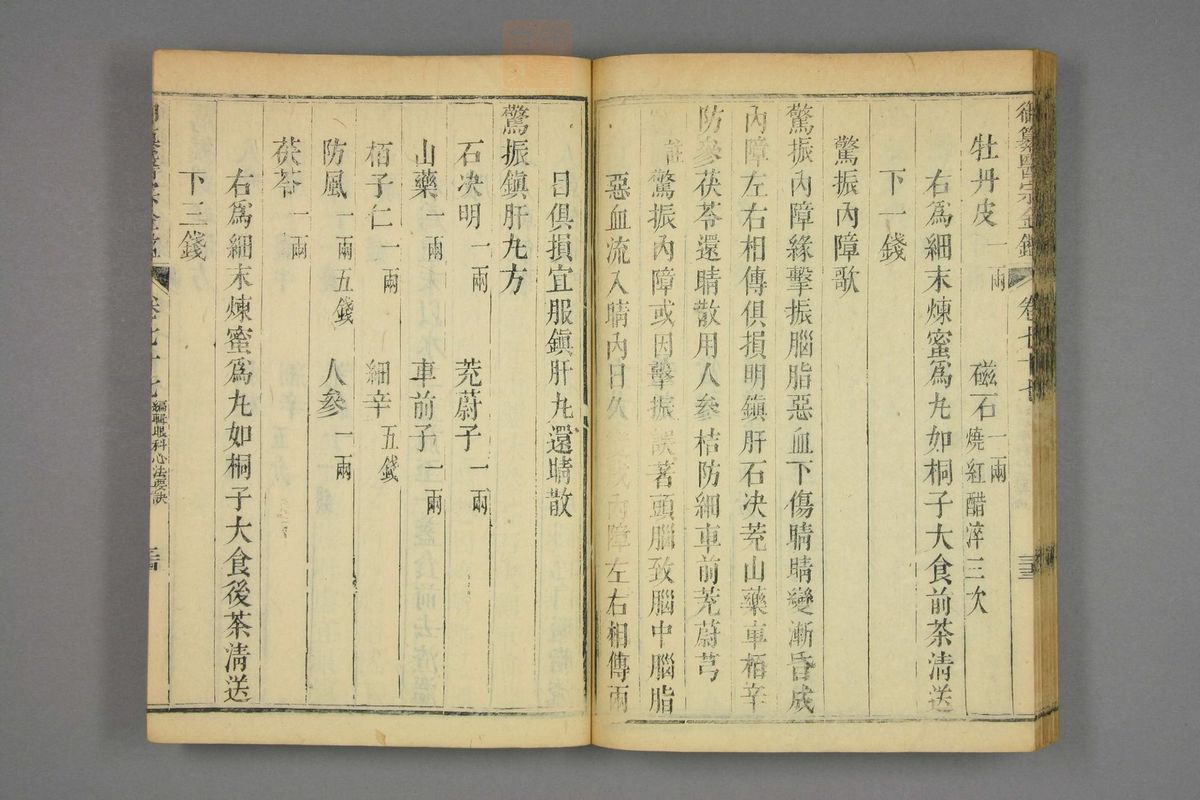 御纂醫宗金鑑 卷七十七
牡丹皮一兩 磁石一兩燒紅醋淬三次
右爲細末煉蜜爲丸如桐子大食前茶清送
下一錢
驚振內障歌
驚振內障緣擊振腦脂惡血下傷睛睛變漸昏成
內障左右相傳俱損明鎮肝石决茺山藥車栢辛
防參茯苓還睛散用人參桔防細車前茺蔚芎
註驚振內障或因擊振誤著頭腦致腦中腦脂
惡血流入睛內日久變成內障左右相傳兩
目俱損宜服鎮肝丸還睛散
驚振鎮肝丸方
石决明一兩 茺蔚子一兩
山藥一兩 車前子一兩
栢子仁一兩 細辛五錢
防風一兩五錢 人參一兩
茯苓一兩
右爲細末煉蜜爲丸如桐子大食後茶清送
下三錢
御纂醫宗金鑑 卷七十七 編輯眼科心法要訣